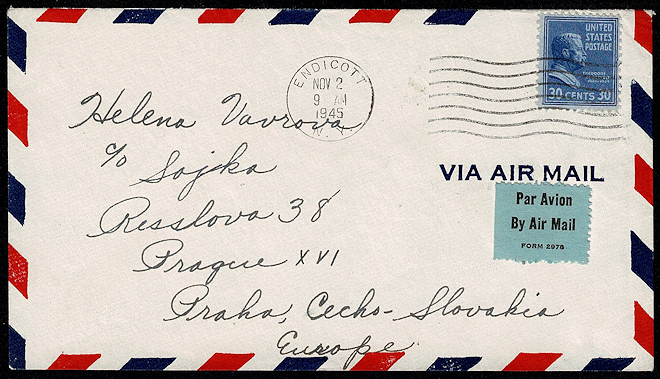 UNITED
STATES
POSTAGE
THEODORE
30 CENTS 30
ENDICOTT
NOV 2
9 AM
1945
N. Y.
Helena Vavrova
c/o Sojka
Resslova 38
Prague XVI
Praha, Cecho-Slovakia
Europe
VIA AIR MAIL
Par Avion
By Air Mail
FORM 2978